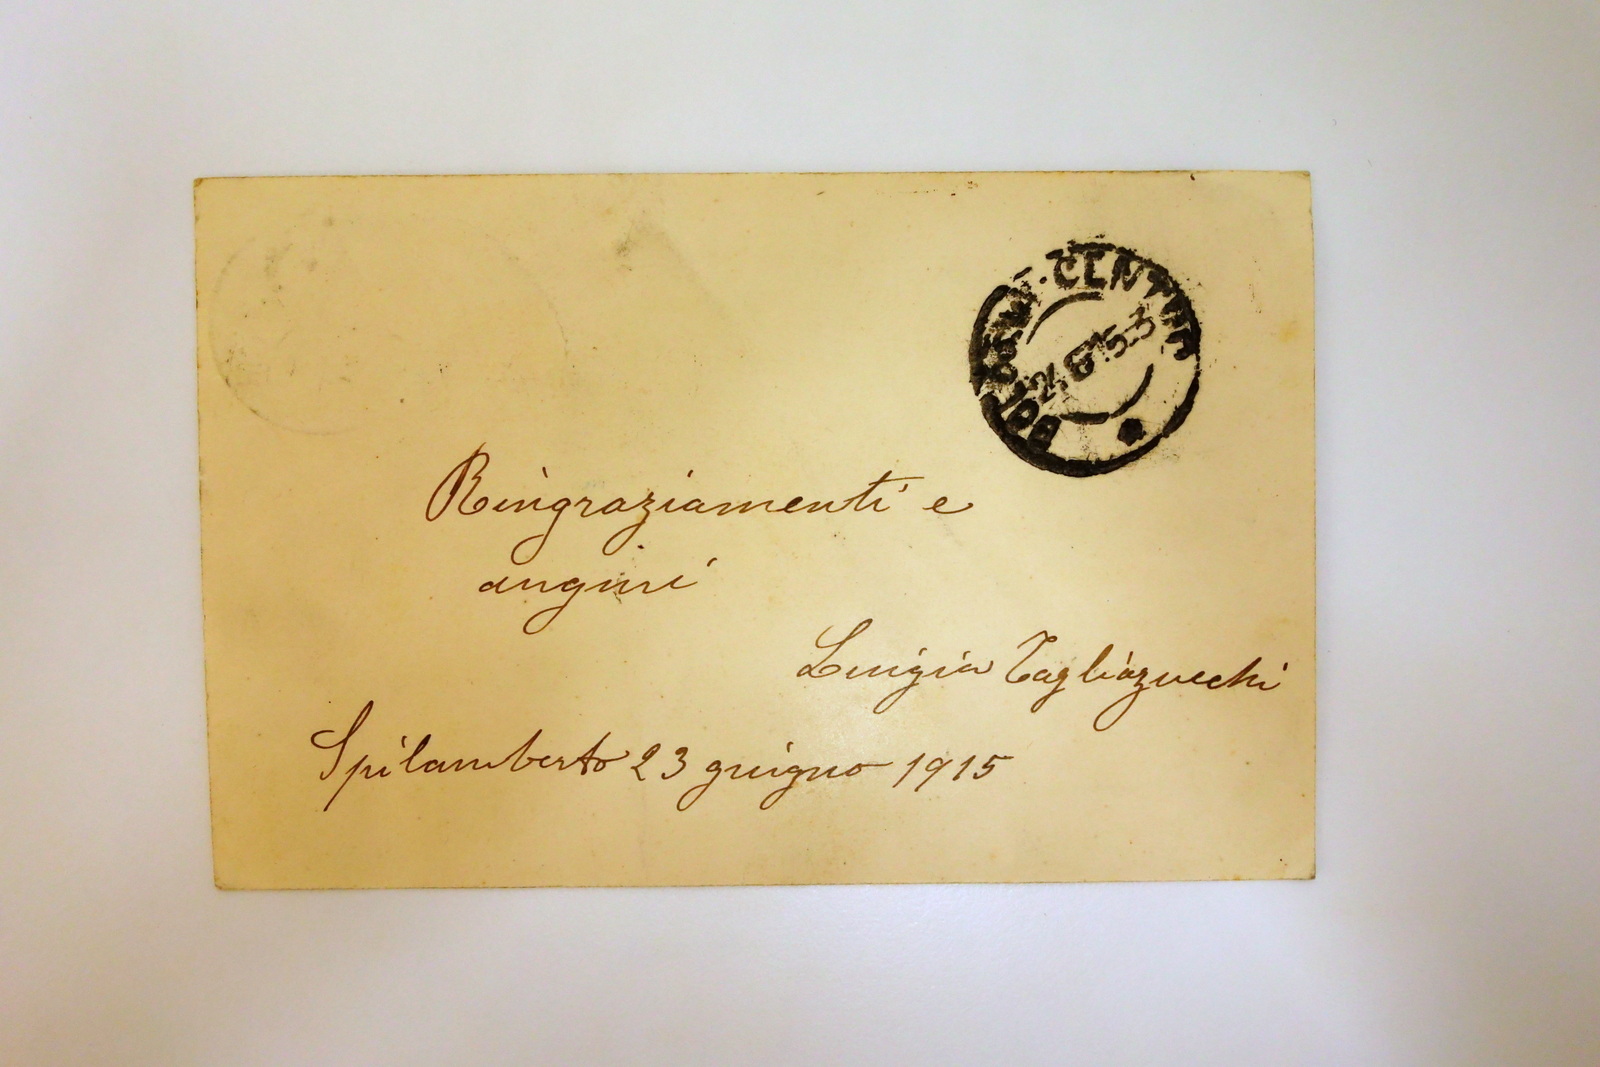 BOLOGNA·CENTRO
24.6.15-3
Ringraziamenti e
auguri
Luigia Tagliazucchi
Spilamberto 23 giugno 1915